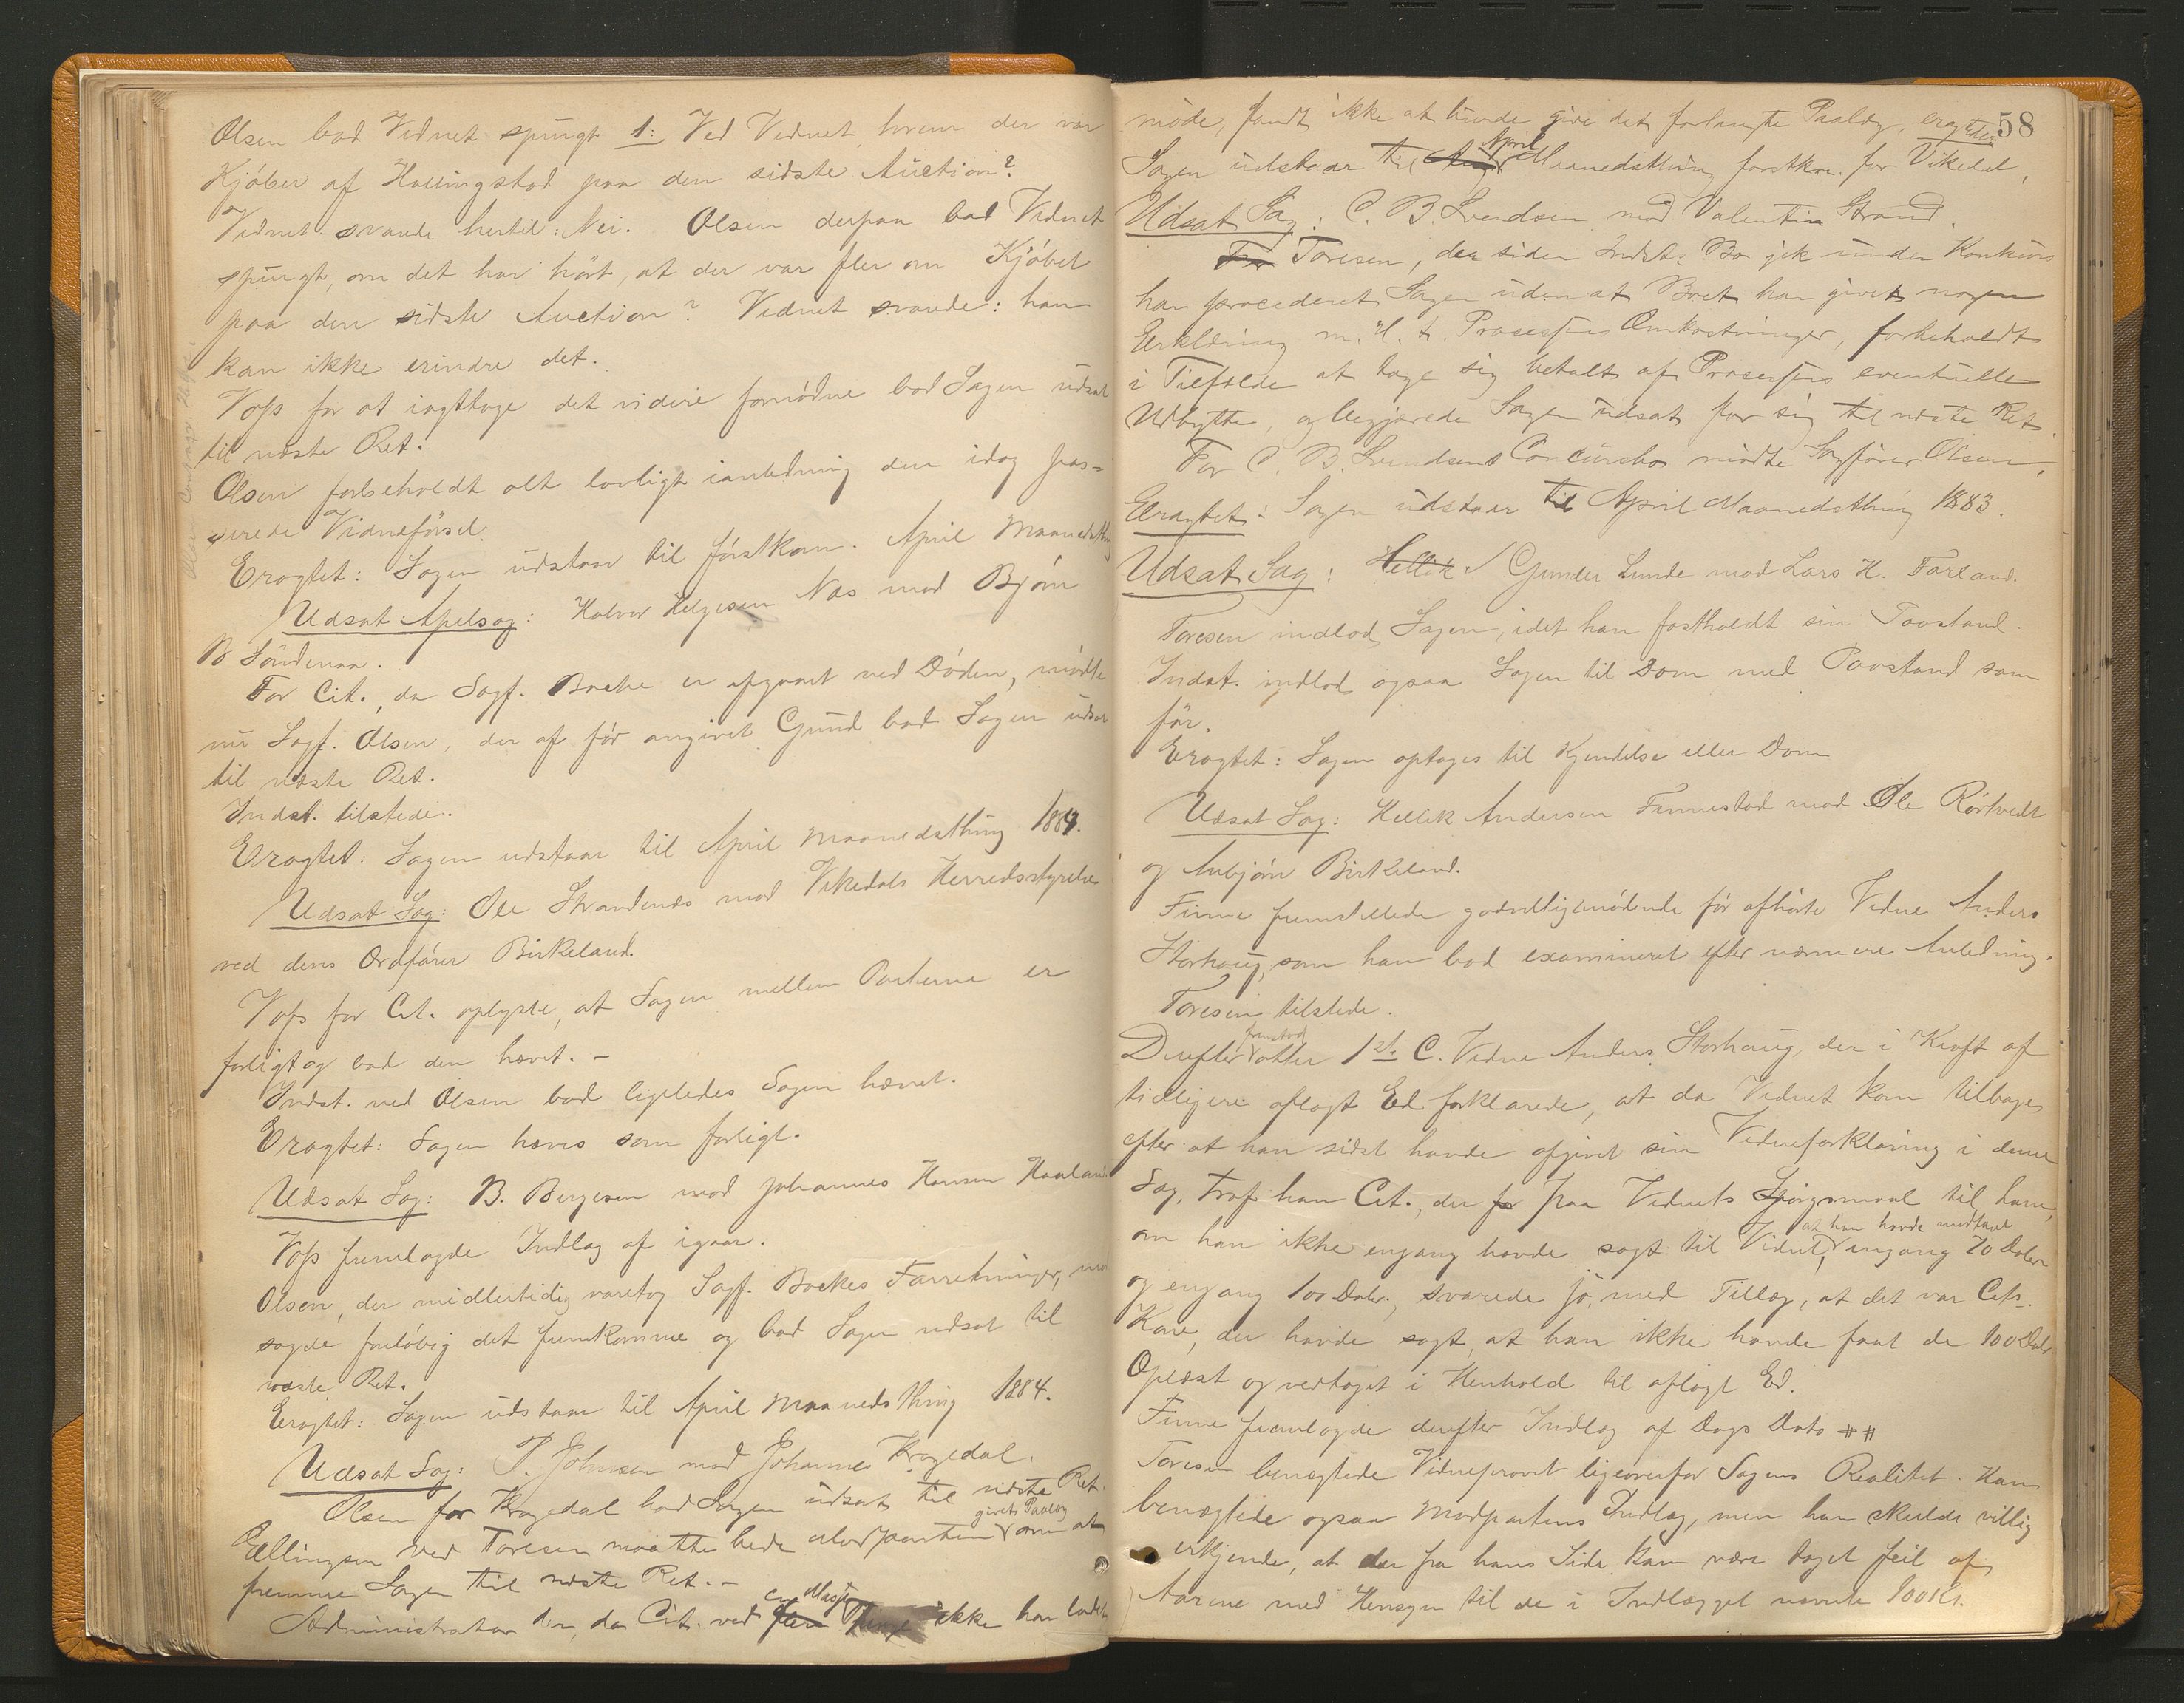 Olsen bad Vidnet spurgt 1: Ved Vidnet, hvem der var
Kjøber af Hallingstad paa den sidste Auction?
Vidnet svarede hertil: Nei. Olsen derpaa bad Vidnet
spurgt, om det har hørt, at der var fler om Kjøbet
paa den sidste Auction? Vidnet svarede: han
kan ikke erindre det.
Voss for at iagttage det videre fornødne bad Sagen udsat
til næste Ret.
Olsen forbeholdt alt lovligt ianledning den idag pas-
serede Vidneførsel.
Eragtet: Sagen udstaar til førstkom. April Maanedsthing
Udsat Apelsag: Halvor Helgesen Næs mod Bjørn
B Søndenaa.
For Cit., da Sagf. Backe er afgaaet ved Døden, mødte
nu Sagf. Olsen, der af før angivet Grund bad Sagen udsat
til næste Ret.
Indst. tilstede.
Eragtet: Sagen udstaar til April Maanedsthing 1884.
Udsat Sag: Ole Strandenæs mod Vikedals Herredsstyrelse
ved dens Ordfører Birkeland.
Voss for Cit. oplyste, at Sagen mellem Parterne er
forligt og bad den hævet. –
Indst. ved Olsen bad ligeledes Sagen hævet.
Eragtet: Sagen hæves som forligt.
Udsat Sag: B. Bergesen mod Johannes Hansen Haaland
Voss fremlagde Indlæg af igaar.
Olsen, der midlertidig varetog Sagf. Backes Forretninger, mod
sagde foreløbig det fremkomne og bad Sagen udsat til
næste Ret.
Eragtet: Sagen udstaar til April Maanedsthing 1884.
Udsat Sag: P. Johnsen mod Johannes Kragedal.
Olsen for Kragedal bad Sagen udsat til næste Ret.
givet Paalæg
Ellingsen ved Toresen maatte bede Modparten om at
fremme Sagen til næste Ret. –
Administrator der, da Cit. ved ikke har ladet
58
møde, fandt ikke at burde give det forlangte Paalæg, eragtede
April
Sagen udstaar til Maanedsthing førstkom. for Vikedal.
Udsat Sag: C. B. Svendsen mod Valentin Strand.
For Toresen, der siden Indst. Bo gik under Konkurs
har procederet Sagen uden at Boet har givet nogen
Erklæring m. H. t. Processens Omkostninger, forbeholdt
i Tilfælde at tage sig betalt af Processens eventuelle
Udbytte, og begjærede Sagen udsat for sig til næste Ret.
For C. B. Svendsens Concursbo mødte Sagfører Olsen.
Eragtet: Sagen udstaar til April Maanedsthing 1883.
Udsat Sag: Hellik Gunder Lunde mod Lars H. Førland.
Toresen indlod Sagen, idet han fastholdt sin Paastand.
Indst. indlod ogsaa Sagen til Dom med Paastand som
før.
Eragtet: Sagen optages til Kjendelse eller Dom
Udsat Sag: Hellik Andersen Finnestad mod Ole Rørtvedt
og Anbjørn Birkeland.
Finne fremstillede godvilligmødende før afhørte Vidne Anders
Storhaug, som han bad examineret efter nærmere Anledning.
Toresen tilstede.
fremstod
Derefter atter 1st. C. Vidne Anders Storhaug, der i Kraft af
tidligere aflagt Ed forklarede, at da Vidnet kom tilbage,
efter at han sidst havde afgivet sin Vidneforklaring i denne
Sag, traf han Cit., der paa Vidnets Spørgsmaal til ham,
at han havde modtaget
om han ikke engang havde sagt til Vidnet, engang 70 Daler
og engang 100 Daler, svarede jo, med Tillæg, at det var Cits.
Kone, der havde sagt, at han ikke havde faat de 100 Daler.
Oplæst og vedtaget i Henhold til aflagt Ed.
Finne fremlagde derefter Indlæg af Dags Dato ##
Toresen benægtede Vidneprovet ligeoverfor Sagens Realitet. Han
benægtede ogsaa Modpartens Indlæg, men han skulde villig
erkjende, at der fra hans Side kan være taget feil af
Aarene med Hensyn til de i Indlægget nævnte 100 Kr.